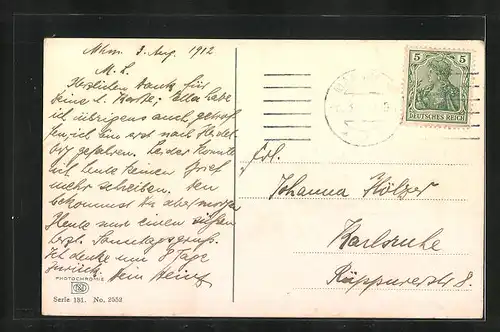 Mhm. 3. Aug. 1912
M. L.
Herzlichen Dank für
Deine l. Karte; Ella habe
ich übrigens auch getrof-
fen, ich bin erst nach Heidel-
berg gefahren. Leider konnte
ich heute keinen Brief
mehr schreiben. Den
bekommst Du aber morgen
Heute nur einen süßen
herzl. Sonntagsgruß.
Ich denke um 8 Tage
zurück. Dein Heinz
PHOTOCHROMIE
Serie 181. No. 2552
5 5
DEUTSCHES REICH
Frl.
Johanna Hölzer
Karlsruhe
Rüppurrerstr 8.